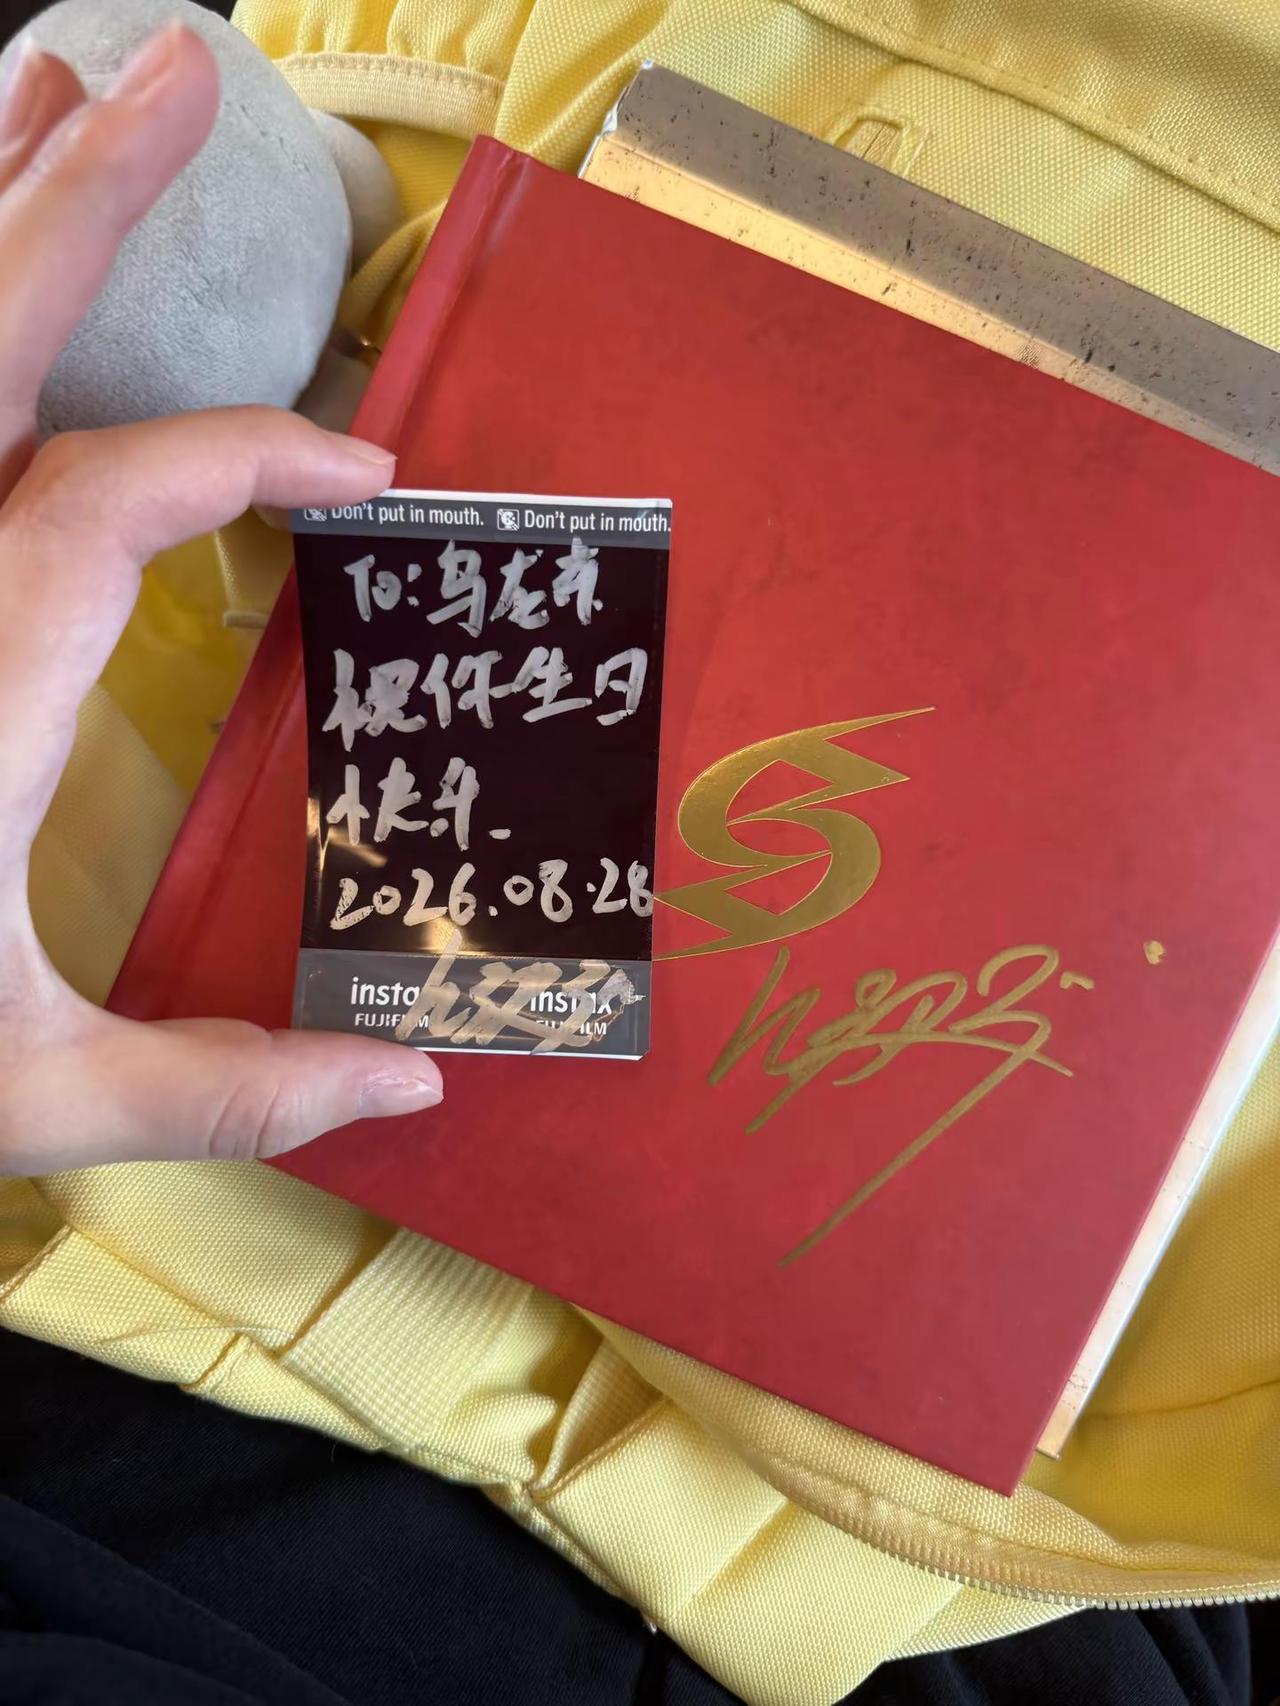 Don't put in mouth. Don't put in mouth.
To:乌龙茶
祝你生日
快乐.
2026.08.28
instax
FUJIFILM FUJIFILM